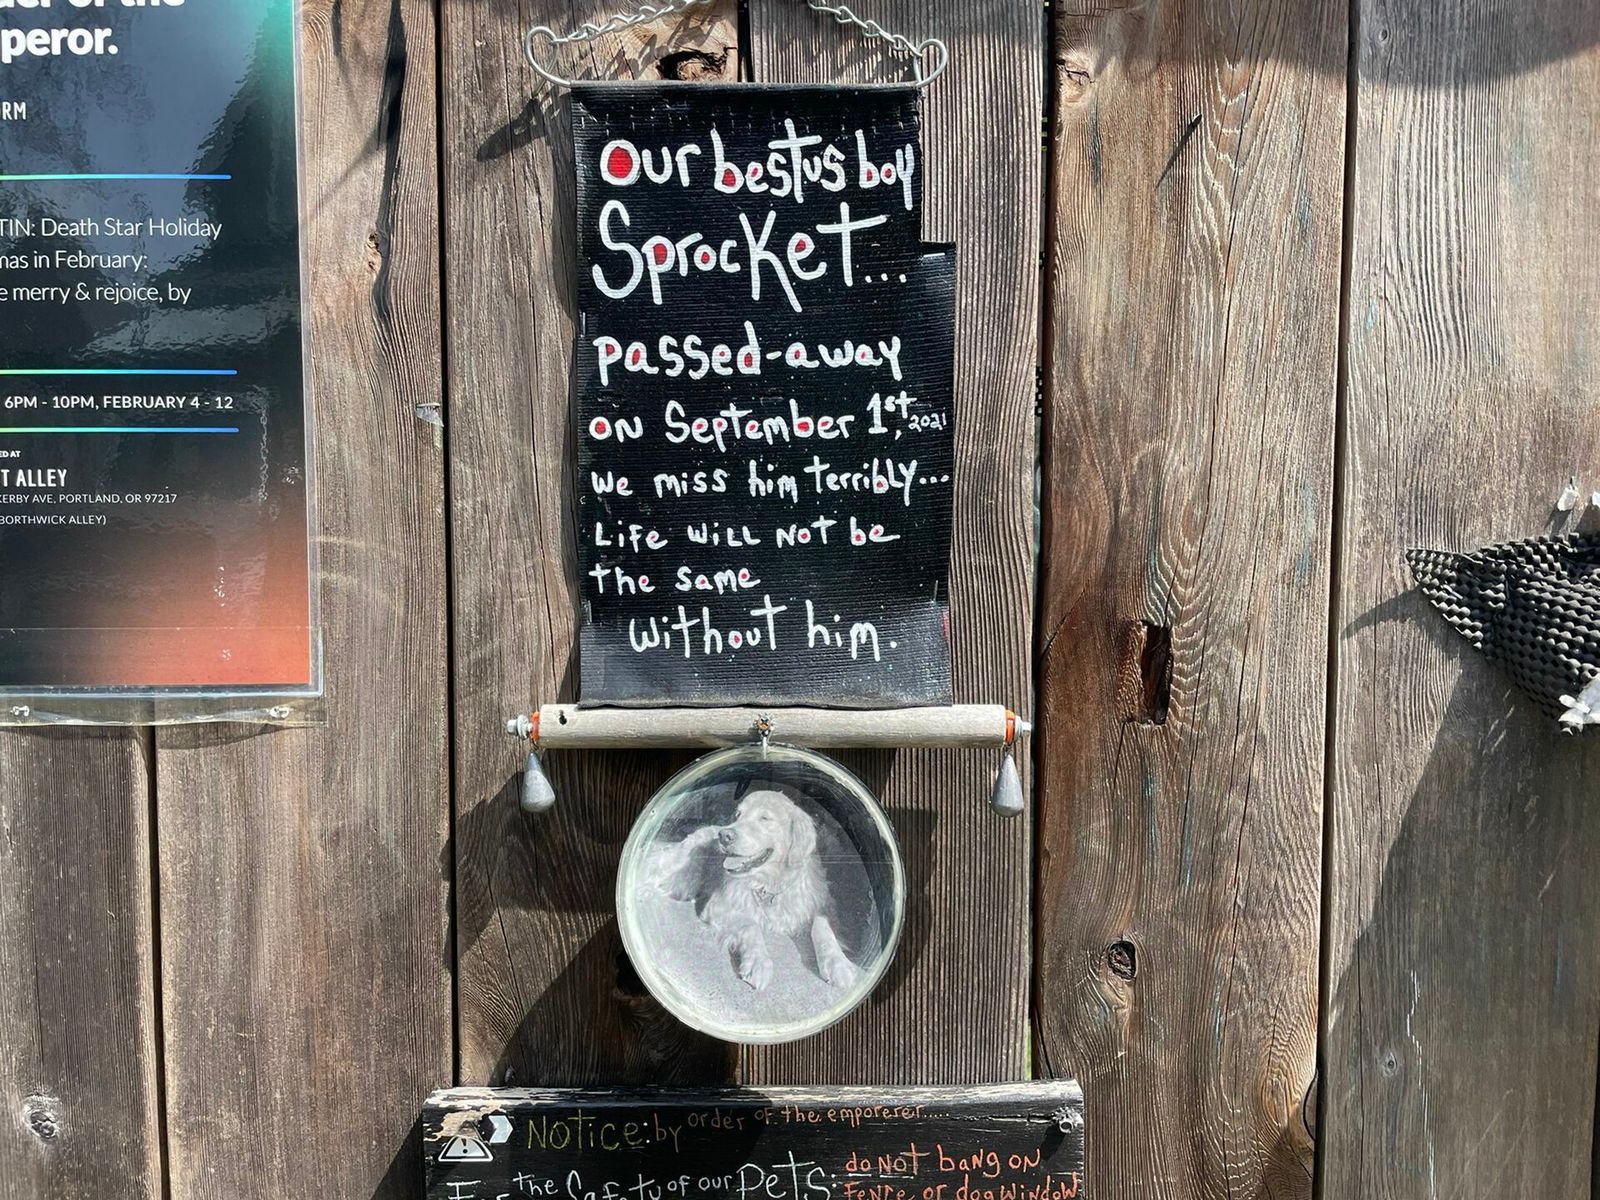 of the
peror.
RM
TIN: Death Star Holiday
mas in February:
e merry & rejoice, by
6PM - 10PM, FEBRUARY 4 - 12
ED AT
T ALLEY
KERBY AVE, PORTLAND, OR 97217
(BORTHWICK ALLEY)
Our bestus boy
Sprocket...
passed-away
on September 1st, 2021
we miss him terribly...
Life will not be
the same
without him.
Notice: by order of the emporerer.....
For the Safety of our Pets: do not bang on
Fence or dog window